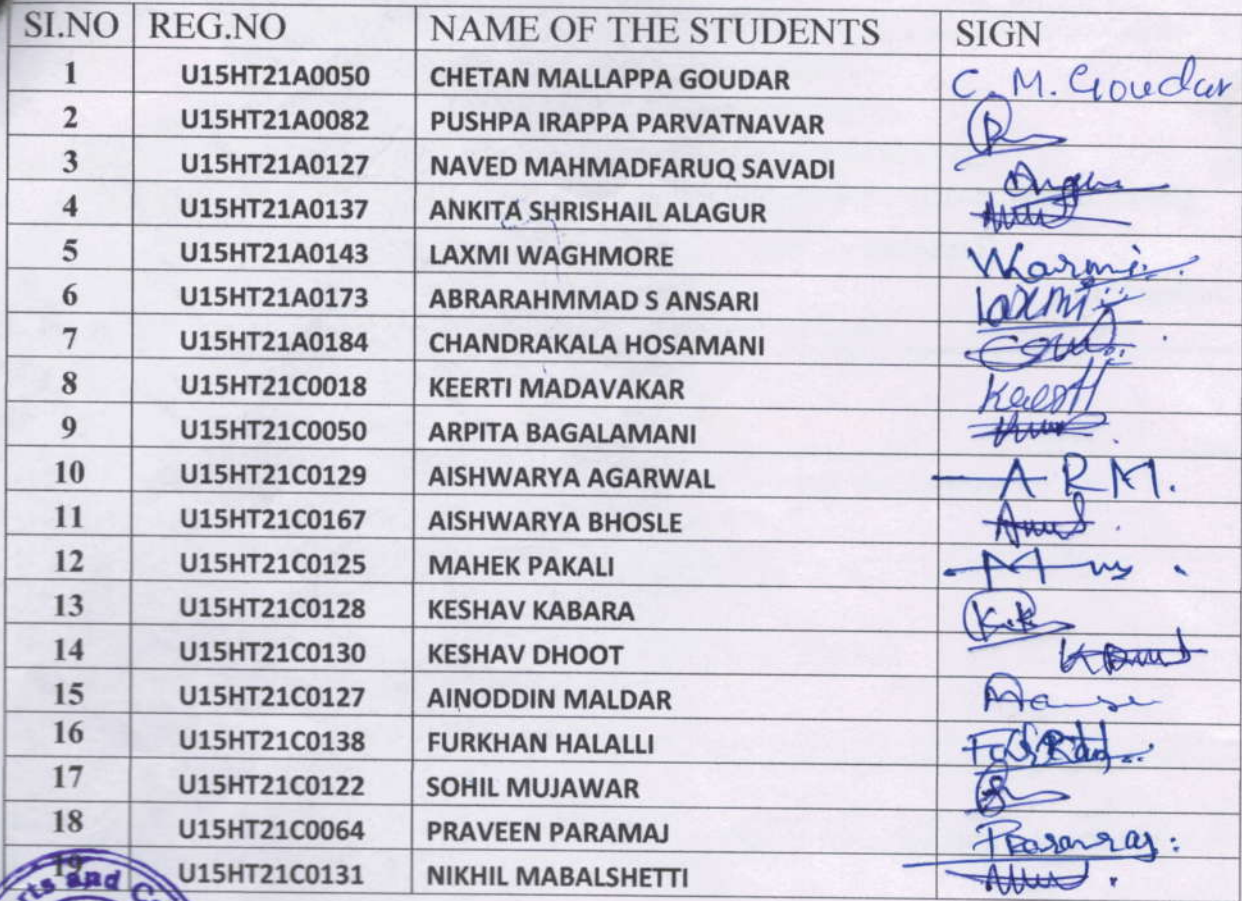 SI.NO REG.NO NAME OF THE STUDENTS SIGN
1 U15HT21A0050 CHETAN MALLAPPA GOUDAR C. M. Goudar
2 U15HT21A0082 PUSHPA IRAPPA PARVATNAVAR
3 U15HT21A0127 NAVED MAHMADFARUQ SAVADI
4 U15HT21A0137 ANKITA SHRISHAIL ALAGUR
5 U15HT21A0143 LAXMI WAGHMORE
6 U15HT21A0173 ABRARAHMMAD S ANSARI Laxmi
7 U15HT21A0184 CHANDRAKALA HOSAMANI
8 U15HT21C0018 KEERTI MADAVAKAR
9 U15HT21C0050 ARPITA BAGALAMANI
10 U15HT21C0129 AISHWARYA AGARWAL A R M.
11 U15HT21C0167 AISHWARYA BHOSLE
12 U15HT21C0125 MAHEK PAKALI
13 U15HT21C0128 KESHAV KABARA
14 U15HT21C0130 KESHAV DHOOT
15 U15HT21C0127 AINODDIN MALDAR
16 U15HT21C0138 FURKHAN HALALLI
17 U15HT21C0122 SOHIL MUJAWAR
18 U15HT21C0064 PRAVEEN PARAMAJ
19 U15HT21C0131 NIKHIL MABALSHETTI
rts and C